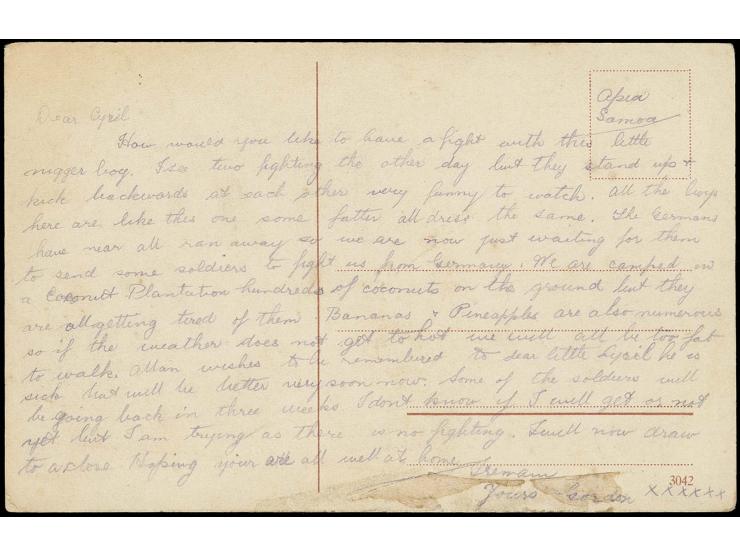 Apia
Samoa
Dear Cyril
How would you like to have a fight with this little
nigger boy. I see two fighting the other day but they stand up &
kick backwards at each other very funny to watch. All the boys
here are like this one some fatter all dress the same. The Germans
have near all ran away so we are now just waiting for them
to send some soldiers to fight us from Germany. We are camped in
a Coconut Plantation hundreds of coconuts on the ground but they
are all getting tired of them. Bananas & Pineapples are also numerous
so if the weather does not get to hot we will all be too fat
to walk. Allan wishes to be remembered to dear little Cyril he is
sick but will be better very soon now. Some of the soldiers will
be going back in three weeks I dont know if I will get or not
yet but I am trying as there is no fighting. I will now draw
to a close Hoping your all well at home
I remain
Yours Gordon xxxxxx
3042